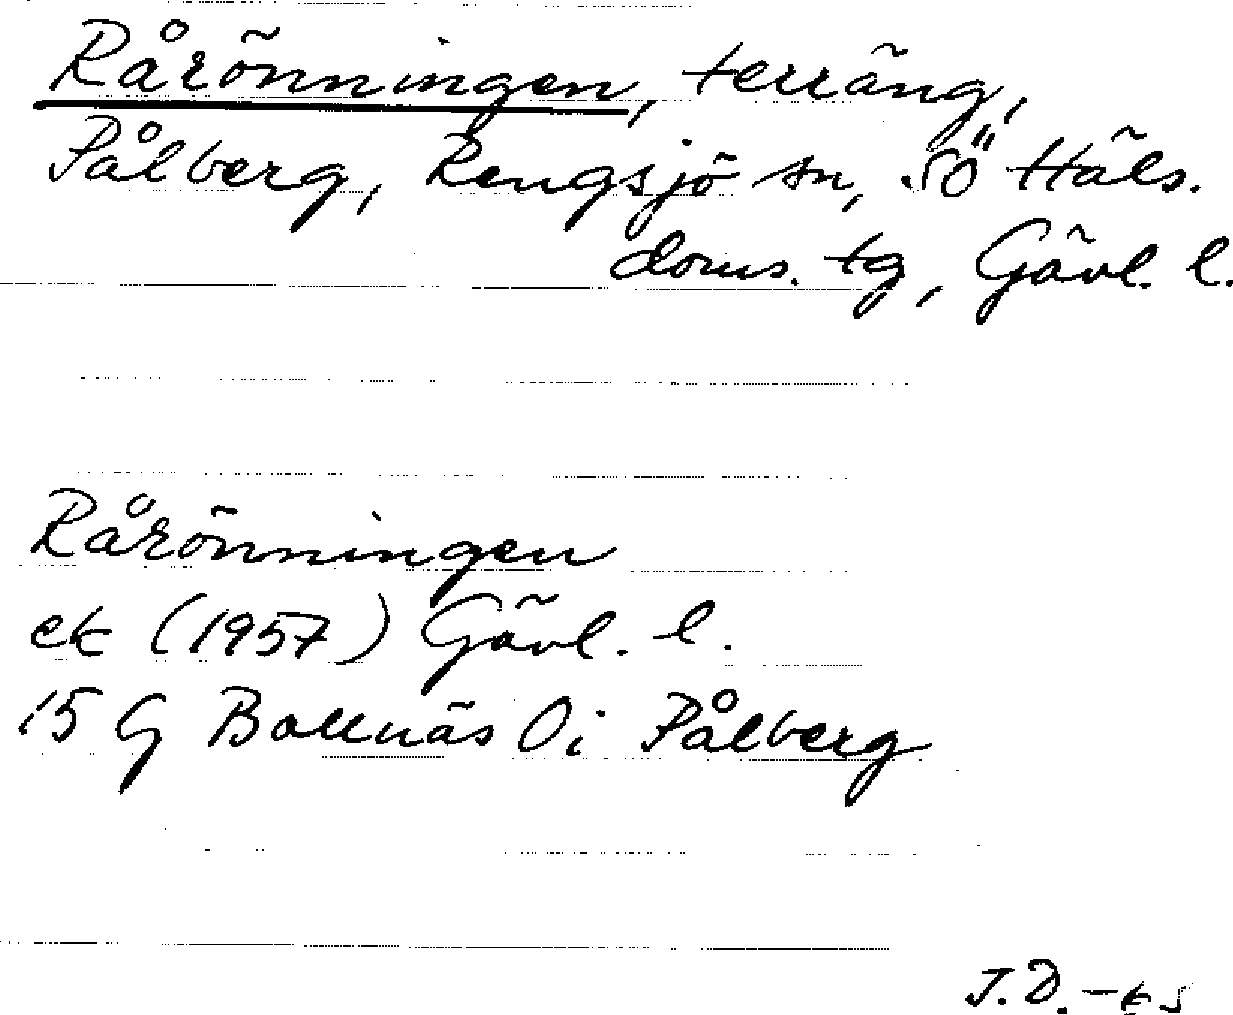 Rårönningen, terräng,
Pålberg, Rengsjö sn, SÖ Häls.
doms. tg, Gävl. l.
Rårönningen
ek (1957) Gävl. l.
15 G Bollnäs 0i Pålberg
J.D.-ks